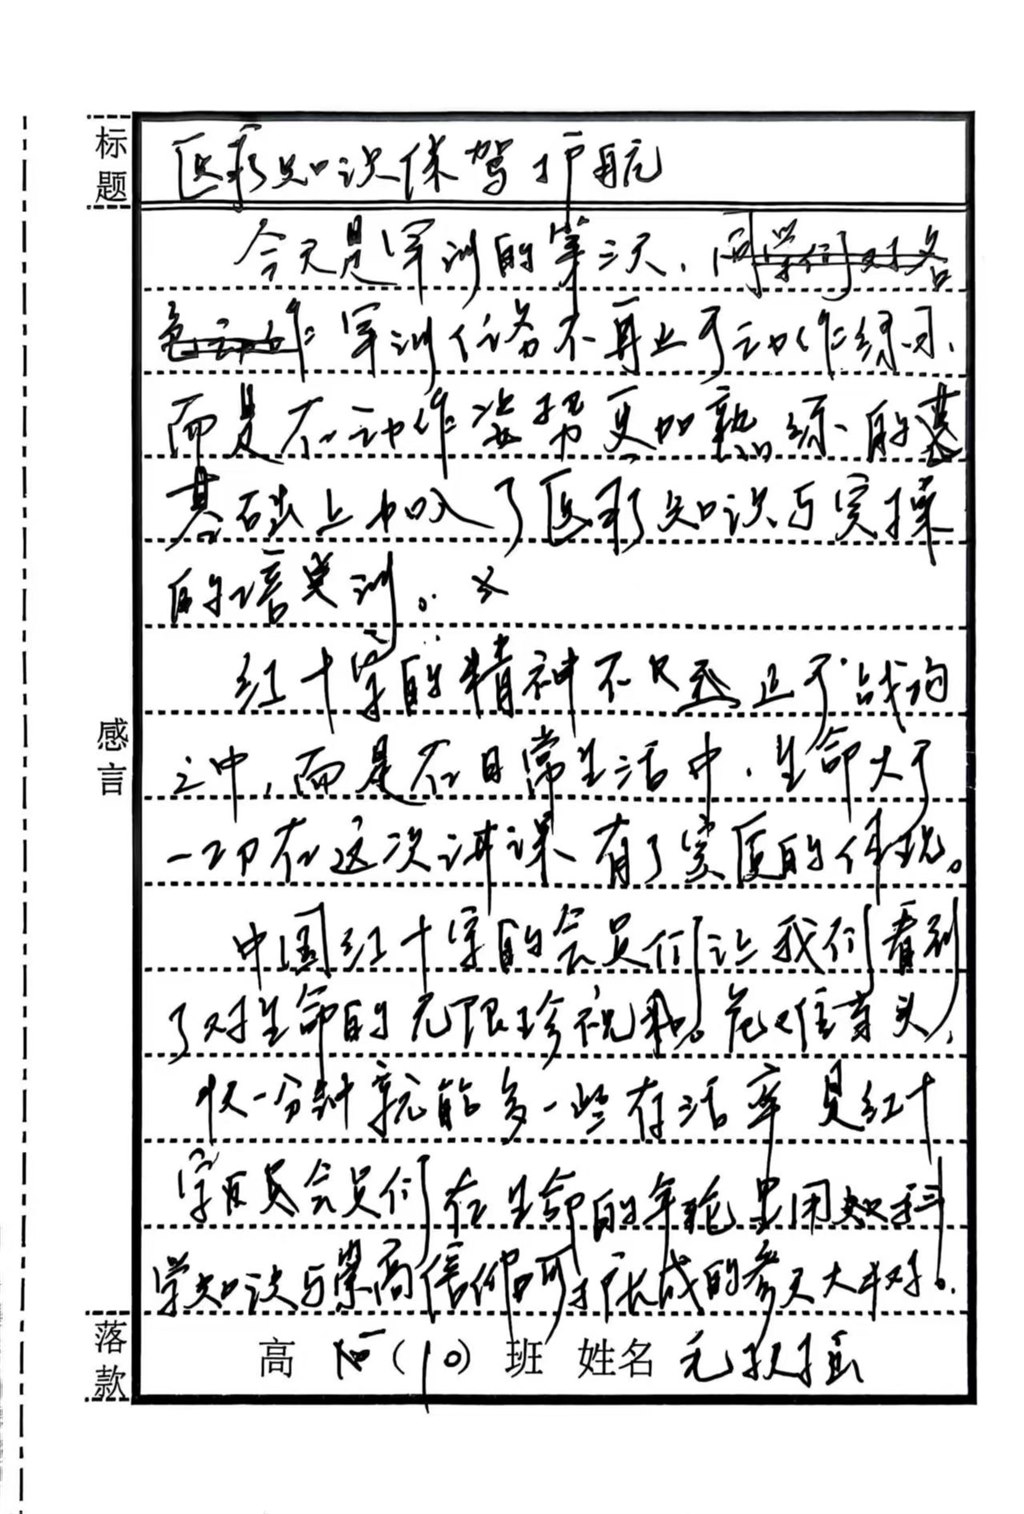 标题
医疗知识保驾护航
今天是军训的第三天，同学们对各
色动作军训任务不再止于动作练习，
而是在动作姿势更加熟练的基
基础上加入了医疗知识与实操
的培训。
红十字的精神不只止于战约
之中，而是在日常生活中，生命大于
一切在这次讲课有了实质的体现。
感言
中国红十字的会员们让我们看到
了对生命的无限珍视。
一分钟就能多一些存活率是红十
字会员们在生命的年轮里用科
学知识与崇高信仰呵护长成的参天大树。
落款
高一（10）班 姓名